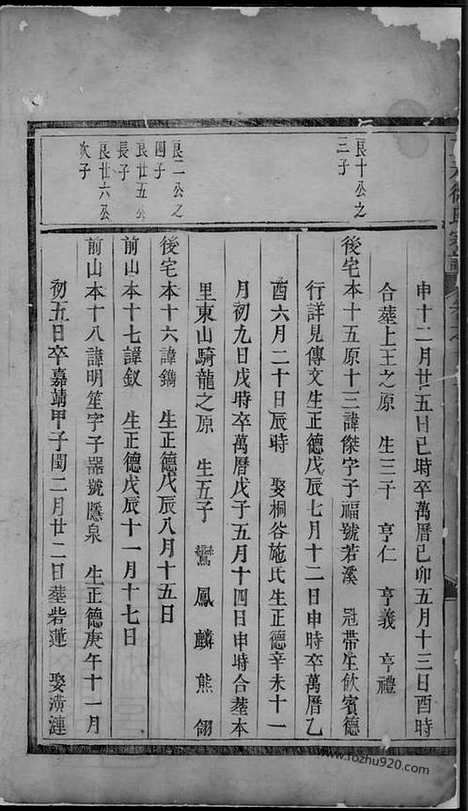 申十二月廿五日巳時卒萬曆己卯五月十三日酉時
合塟上王之原　生三子　亨仁　亨義　亨禮
良十公之
三子
後宅本十五原十三諱傑字子福號若溪　冠帶生飲賓德
行詳見傳文生正德戊辰七月十二日申時卒萬曆乙
酉六月二十日辰時　娶桐谷施氏生正德辛未十一
月初九日戌時卒萬曆戊子五月十四日申時合塟本
里東山騎龍之原　生五子　鸞　鳳　麟　熊　翎
良二公之
四子
後宅本十六諱鐫　生正德戊辰八月十五日
良廿五公
長子
前山本十七諱釵　生正德戊辰十一月十七日
良廿六公
次子
前山本十八諱明笙字子器號隱泉　生正德庚午十一月
初五日卒嘉靖甲子閏二月廿二日塟砦蓮　娶潢漣
www.fozhu920.com